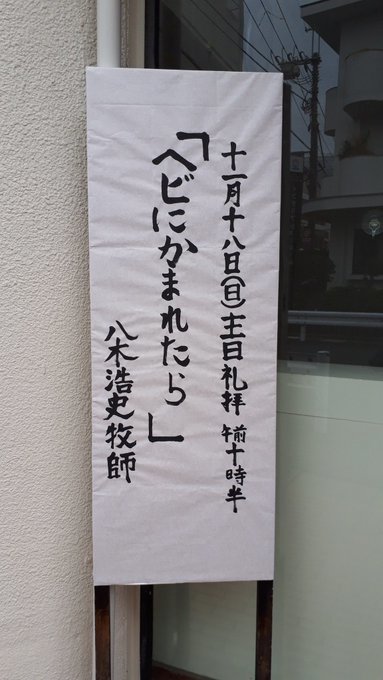 十一月十八日(日)主日礼拝 午前十時半
「ヘビにかまれたら」
八木浩史牧師